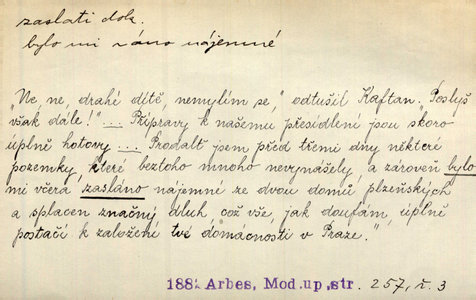 zaslati dok.
bylo mi ráno nájemné
"Ne, ne, drahé dítě, nemýlím se," odtušil Kaftan. "Poslyš
však dále!" ... Přípravy k našemu přesídlení jsou skoro
úplně hotovy ... Prodalť jsem před třemi dny některé
pozemky, které beztoho mnoho nevynášely, a zároveň bylo
mi včera zasláno nájemné ze dvou domů plzeňských
a splacen značný dluh, což vše, jak doufám, úplně
postačí k založení tvé domácnosti v Praze."
188 Arbes, Mod.up,str. 257, ř. 3